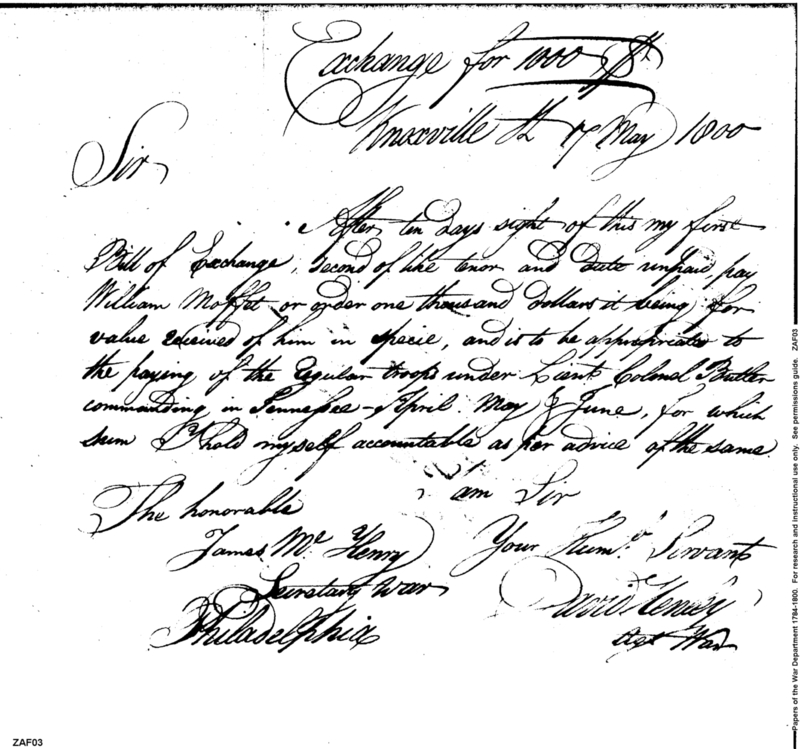 Exchange for 1000 Drs
Knoxville St. 17 May 1800
Sir,
After ten days sight of this my first
Bill of Exchange, second of like tenor and date unpaid, pay
William Moffet or order one thousand dollars it being for
value received of him in specie, and is to be appropriated to
the paying of the regular troops under Lieut. Colonel Butler
commanding in Tennessee - April May & June, for which
sum I hold myself accountable as per advice of the same.
I am Sir
The honorable
James McHenry
Your Humb. Servant
Secretary War
David Henley
Philadelphia
Agt War
Papers of the War Department 1784-1800. For research and instructional use only. See permissions guide. ZAF03
ZAF03